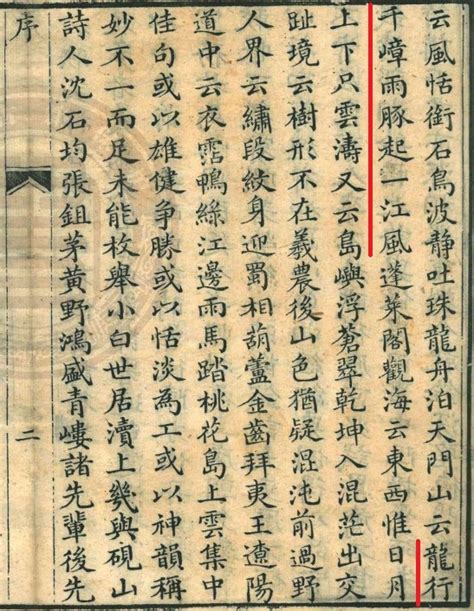 云風恬銜石鳥波靜吐珠龍舟泊天門山云龍行
千嶂雨豚起一江風蓬萊閣觀海云東西惟日月
上下只雲濤又云島嶼浮蒼翠乾坤入混茫出交
趾境云樹形不在羲農後山色猶疑混沌前過野
人界云繡段紋身迎蜀相葫蘆金齒拜夷王遼陽
道中云衣霑鴨綠江邊雨馬踏桃花島上雲集中
佳句或以雄健爭勝或以恬淡為工或以神韻稱
妙不一而足未能枚舉小白世居瀆上幾與硯山
詩人沈石均張鉏茅黃野鴻盛青嶁諸先輩後先
序
二